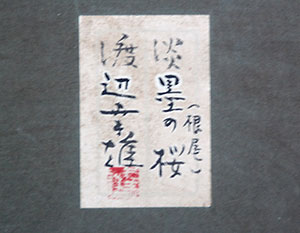 淡墨の桜
(根尾)
渡辺幸雄